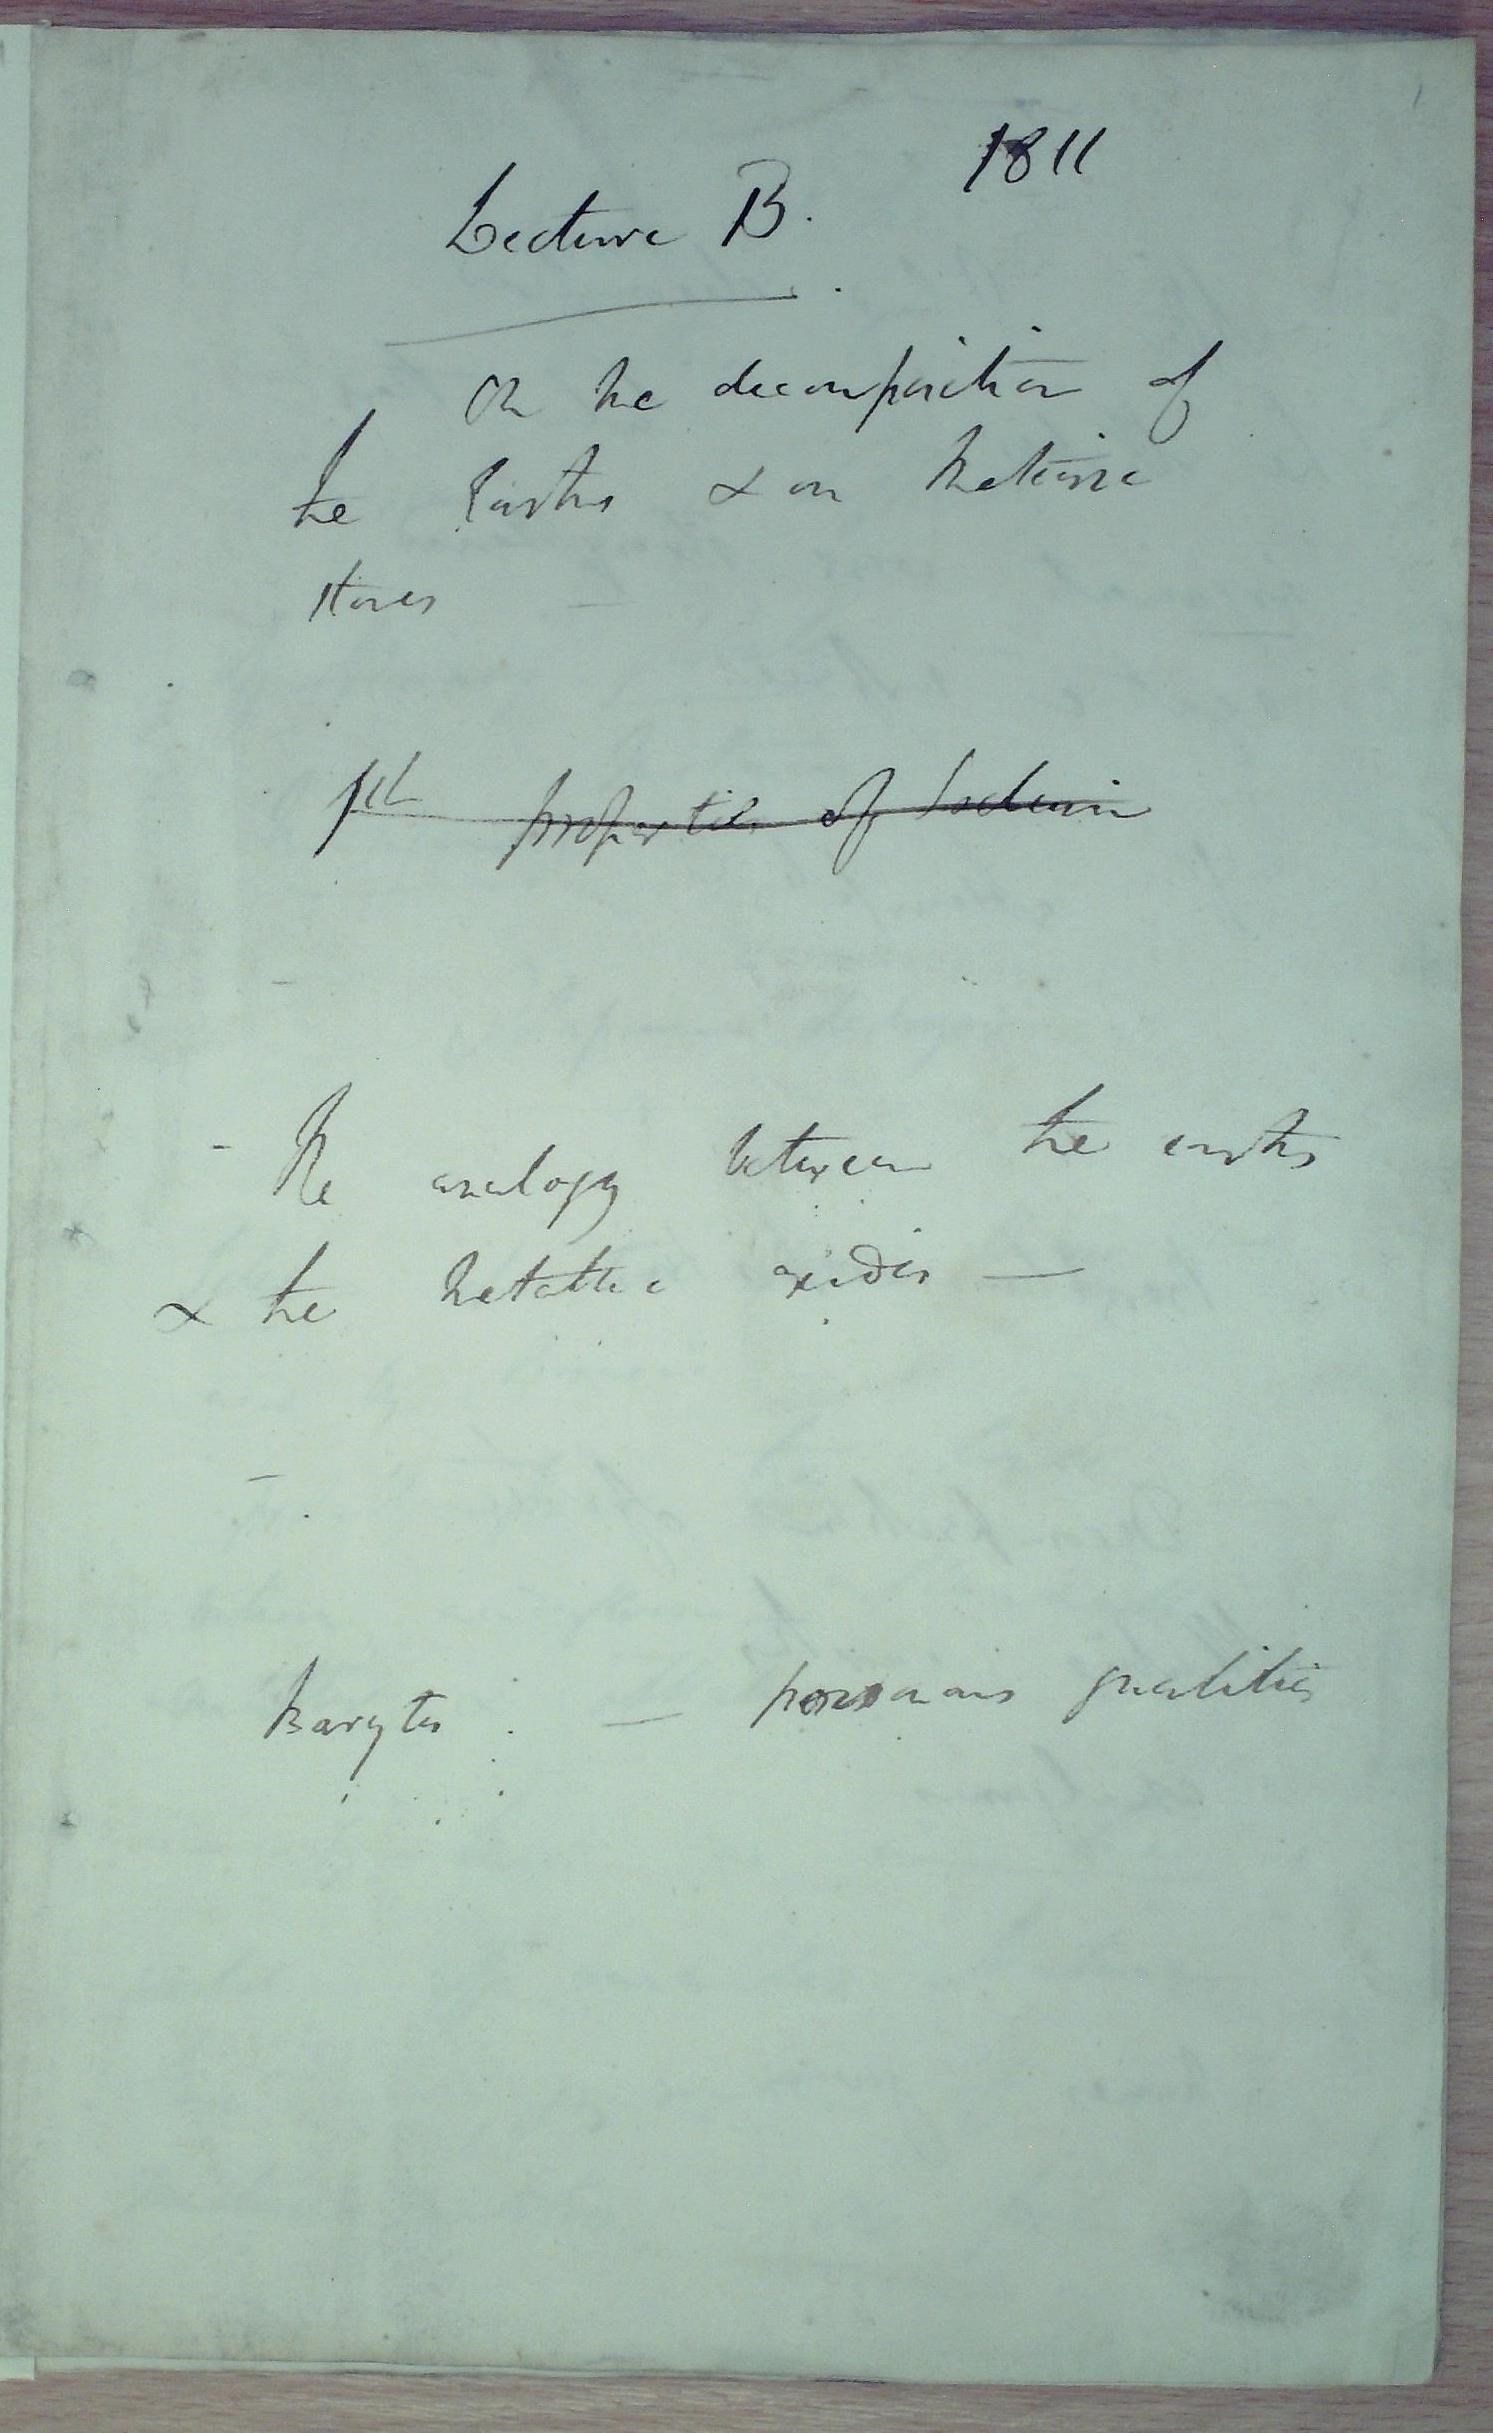 1
1811
Lecture B.
On the decomposition of
the Earths & on Meteoric
stones
1st properties of Sodium
- The analogy between the earths
& the metallic oxides —
Barytes — poisonous qualities